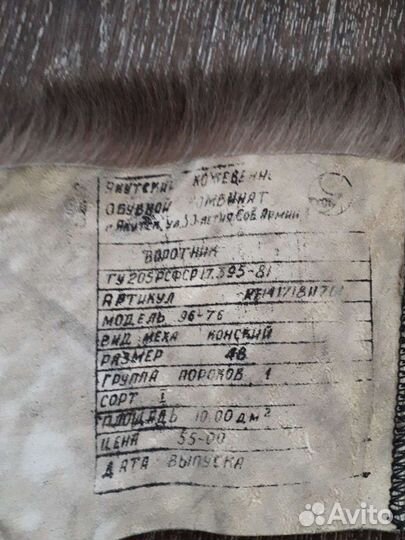 ЯКУТСКИЙ КОЖЕВЕННО
ОБУВНОЙ КОМБИНАТ
г. ЯКУТСК, УЛ. 50-ЛЕТИЯ СОВ. АРМИИ
ВОРОТНИК
ТУ 205РСФСР 17.595-81
АРТИКУЛ
МОДЕЛЬ 96-76
ВИД МЕХА КОНСКИЙ
РАЗМЕР 48
ГРУППА ПОРОКОВ 1
СОРТ I
ПЛОЩАДЬ 10.00 дм²
ЦЕНА 55-00
ДАТА ВЫПУСКА
Avito